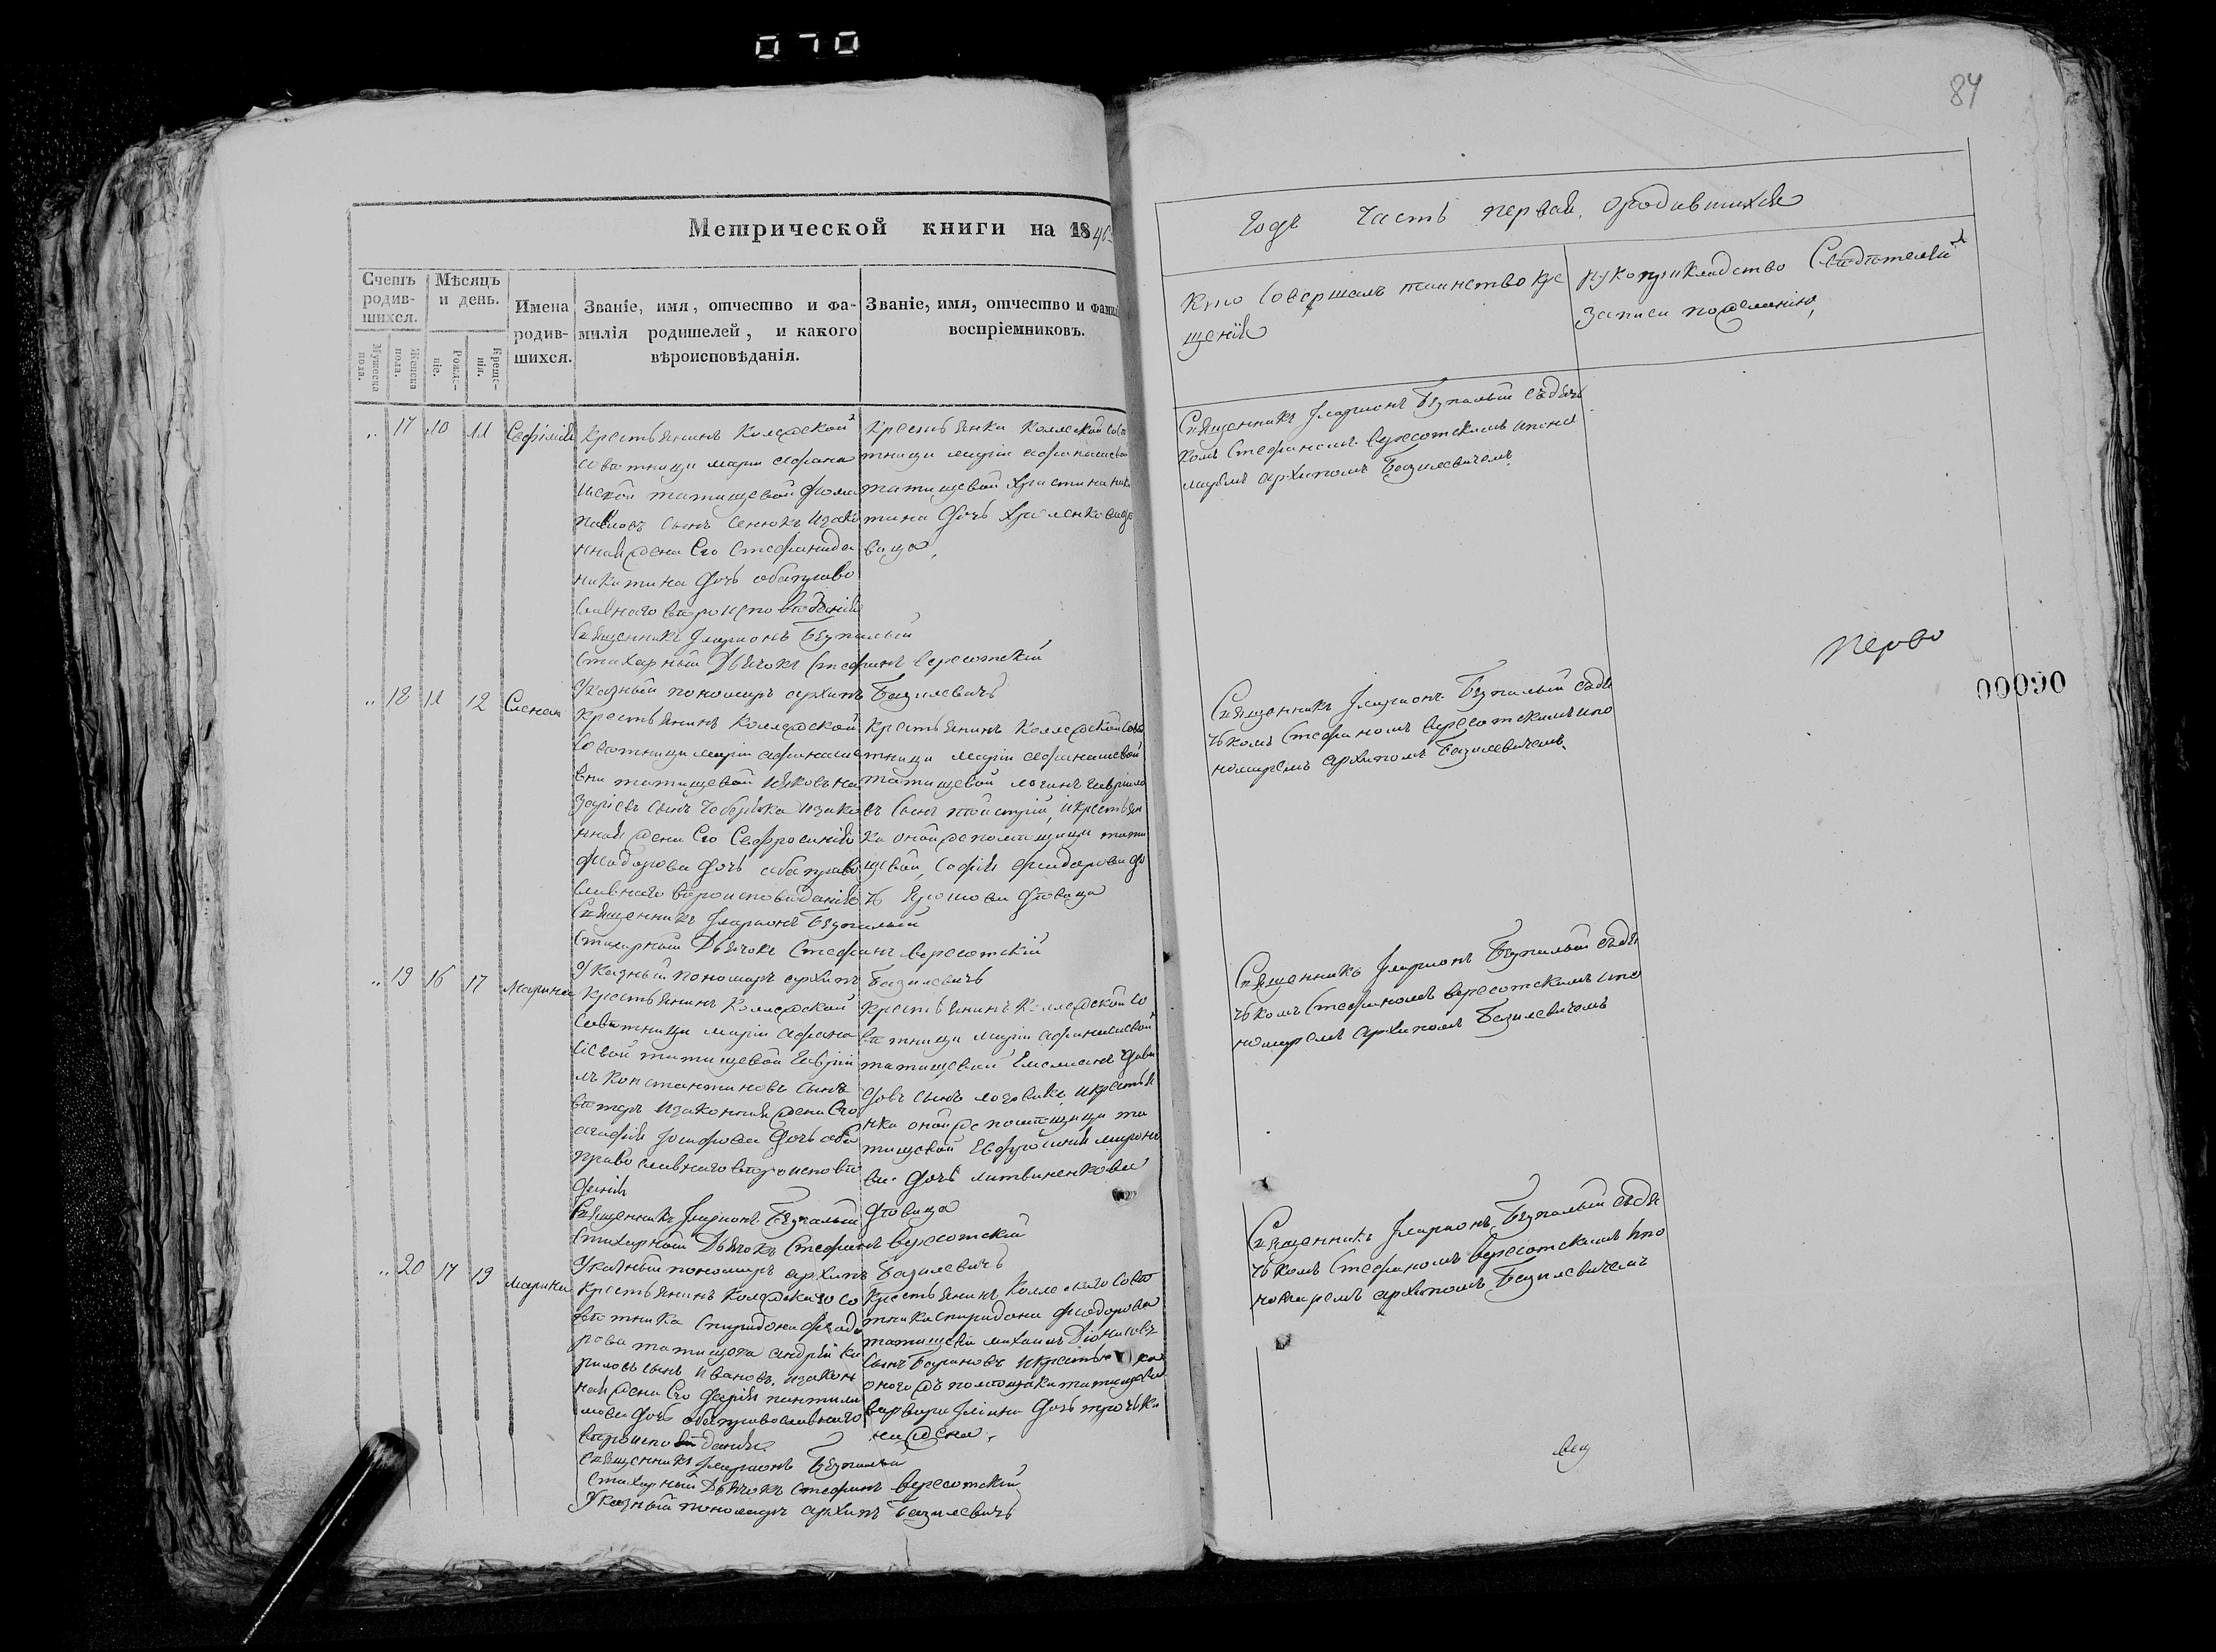 070
84
Метрической книги на 1846
Годъ Часть первая, ородившихся
Счетъ родив-шихся.
Мѣсяцъ и день.
Имена родив-шихся.
Званіе, имя, отчество и фа-
милія родителей, и какого
вѣроисповѣданія.
Званіе, имя, отчество и фамил
воспріемниковъ.
Мужеска пола.
Женска пола.
Рожде-ніе.
Креще-нія.
Кто совершалъ таинство кре
щенія
рукоприкладство Свидѣтелей
записи пожеланію,
17 10 11
Крестьянинъ Колежской
совѣтници маріи афана
татищевой фома
сынъ изако
нная жена Его Стефанида
никитина дочь обаправо
славнаго вѣроисповѣданія
Священникъ Иларионъ Безпалый
Стихарный Дьячокъ Стефанъ Вересотскій
Указный пономарь архипъ Базилевичъ
Крестьянки Коллежской совѣ
тници маріи афанасиевой
татищевой Христина ники
тина дочь
вица,
Священникъ Иларионъ Безпалый съдьяч
комъ Стефаномъ Вересотскимъ ипоно
маремъ архипомъ Базилевичемъ
18 11 12 Елена
Крестьянинъ Коллежской
Совѣтници маріи афанасие
вни татищевой яковъ на
заріевъ сынъ Чебедяка изако
нная жена Его Евфросинія
феодорова дочь обаправо
славнаго вѣроисповѣданія
Священникъ Иларионъ Безпалый
Стихарный Дьячокъ Стефанъ Вересотскій
Указный пономарь архипъ Базилевичъ
Крестьянинъ Коллежской совѣ
тници маріи афанасиевой
татищевой логинъ гавріило
въ сынъ икрестьян
ка онойже помѣщици тати
щевой, софія феодорова до
чь дѣвица
Священникъ Иларионъ Безпалый съдья
чкомъ Стефаномъ Вересотскимъ ипо
номаремъ архипомъ Базилевичемъ
перво
00090
19 16 17 Марина
Крестьянинъ Коллежской
Совѣтници маріи афана
сіевой татищевой гавріи
лъ константиновъ сынъ
вѣтеръ изаконная жена Его
агафія иосифова дочь оба
православнаго вѣроисповѣ
данія
Священникъ Иларионъ Безпалый
Стихарный Дьячокъ Стефанъ Вересотскій
Указный пономарь архипъ Базилевичъ
Крестьянинъ Коллежской со
вѣтници маріи афанасиевой
татищевой Емелианъ дави
довъ сынъ лозовикъ икрестья
нка онойже помѣщици та
тищевой Евфросинія мироно
ва дочь литвиненкова
дѣвица
Священникъ Иларионъ Безпалый съдья
чкомъ Стефаномъ Вересотскимъ ипо
номаремъ архипомъ Базилевичемъ
20 17 19 Марина
Крестьянинъ Колежскаго со
вѣтника Спиридона феодо
рова татищева андрей ки
риловъ сынъ ивановъ, изакон
ная жена Его дарія пантили
мова дочь обаправославнаго
вѣроисповѣданія
Священникъ Иларионъ Безпалый
Стихарный Дьячокъ Стефанъ Вересотскій
Указный пономарь архипъ Базилевичъ
Крестьянинъ Коллежскаго Совѣ
тника спиридона феодорова
татищева михаилъ Діонисовъ
сынъ Барановъ икрестьянка
оногожъ помѣщика татищева
варвара Іліина дочь
Священникъ Иларионъ Безпалый съдья
чкомъ Стефаномъ Вересотскимъ ипо
номаремъ архипомъ Базилевичемъ